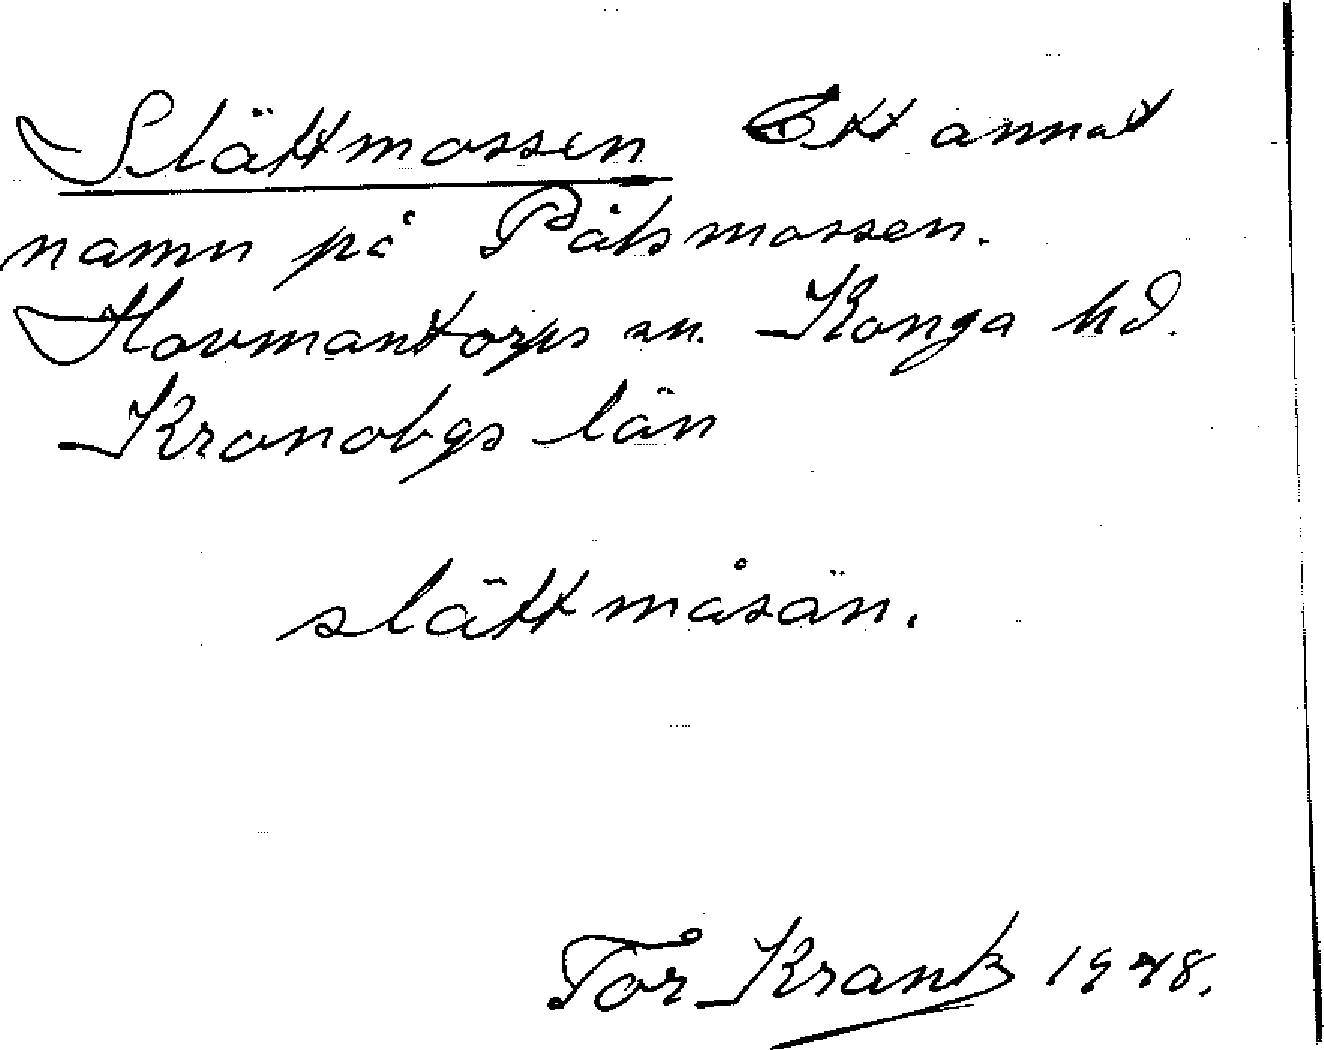 Slättmossen Ett annat
namn på Påksmossen.
Hovmantorps sn. Konga hd.
Kronobgs län
slättmåsän.
Tor Krank 1948.